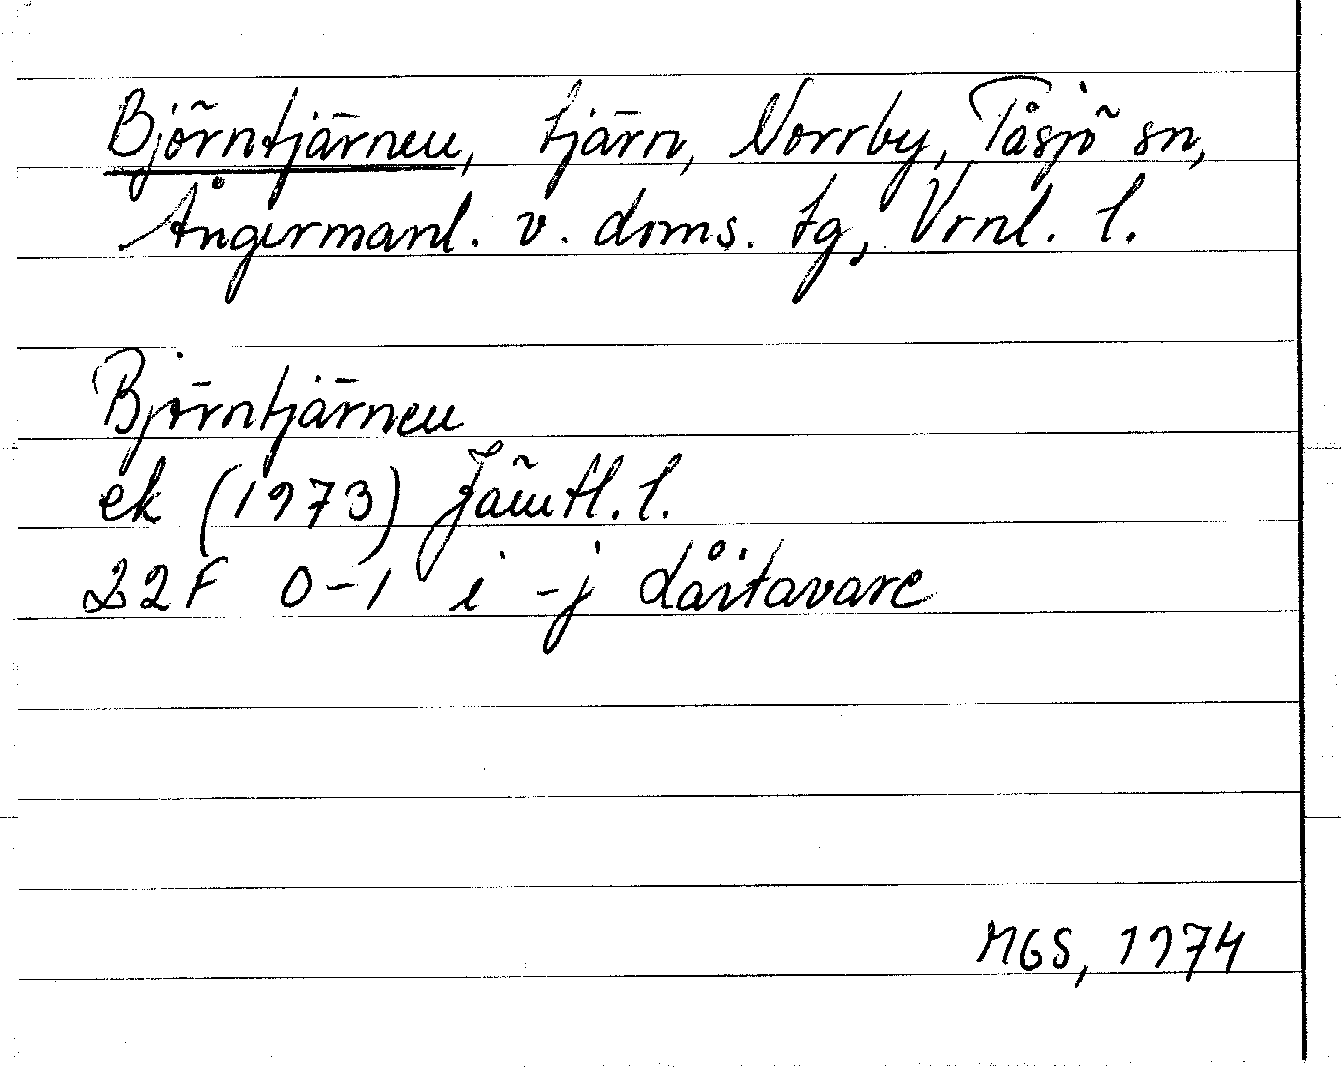 Björntjärnen, tjärn, Norrby, Tåsjö sn,
Ångermanl. v. doms. tg, Vrnl. l.
Björntjärnen
ek (1973) Jämtl. l.
22F 0-1 i-j Dåitavare
MGS, 1974